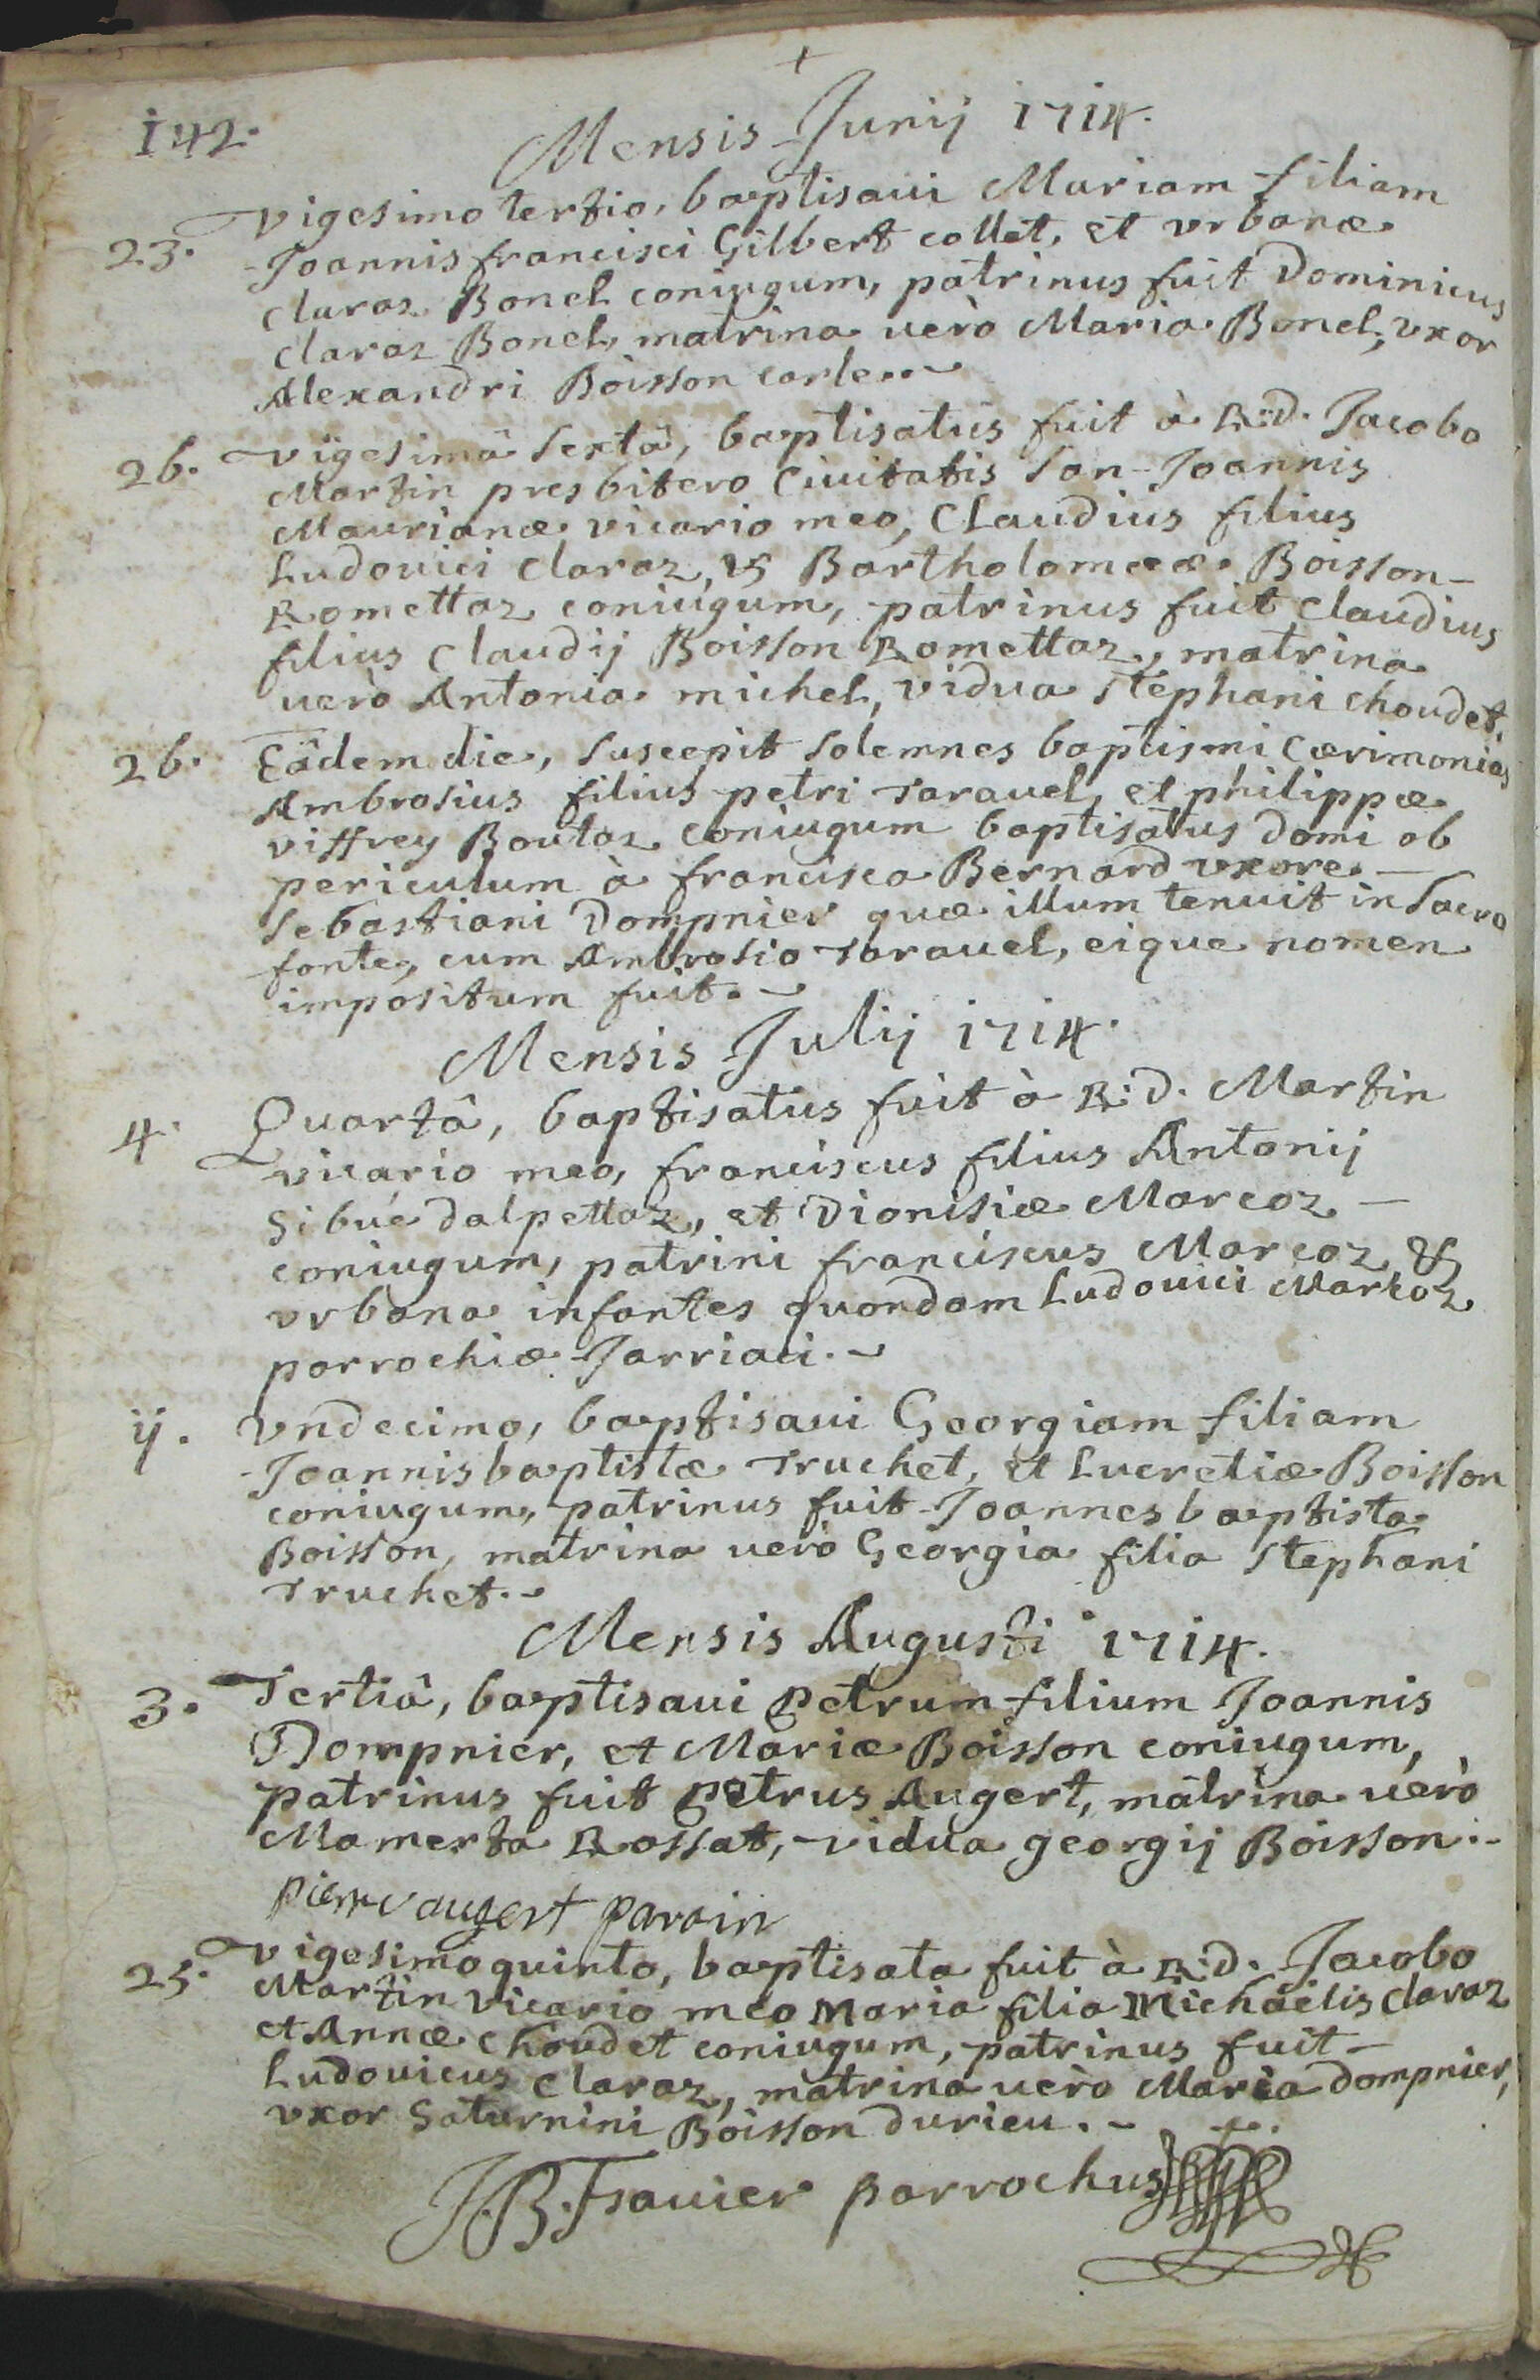 +
142.
Mensis Junij 1714.
23. vigesimo tertio, baptisaui Mariam filiam
Joannis francisci Gilbert collet, et vrbanæ
claraz Bonel coniugum, patrinus fuit Dominicus
claraz Bonel, matrina uerò Maria Bonel, vxor
Alexandri Boisson carle..
26. vigesimâ sextâ, baptisatus fuit à R:d. Jacobo
Martin presbitero Ciuitatis San-Joannis
Maurianæ vicario meo, Claudius filius
Ludouici claraz, & Bartholomeæ Boisson-
Romettaz coniugum, patrinus fuit claudius
filius claudij Boisson Romettaz, matrina
uerò Antonia michel, vidua stephani choudet.
26. Eâdem die, suscepit solemnes baptismi Cærimonias
Ambrosius filius petri Tarauel, et philippæ
viffrey Boutaz coniugum baptisatus domi ob
periculum à francisca Bernard vxore -
sebastiani Dompnier quæ illum tenuit in sacro
fonte, cum Ambrosio Tarauel, eique nomen
impositum fuit.
Mensis Julij 1714.
4. Quartâ, baptisatus fuit à R:d. Martin
vicario meo, franciscus filius Antonij
Sibué dalpettaz, et Dionisiæ Marcoz -
coniugum, patrini franciscus Marcoz &
vrbana infantes quondam Ludouici Marcoz
parrochiæ Jarriaci.
ij. vndecimo, baptisaui Georgiam filiam
Joannisbaptistæ Truchet, et Lucretiæ Boisson
coniugum, patrinus fuit Joannesbaptista
Boisson, matrina uerò Georgia filia stephani
Truchet.
Mensis Augusti 1714.
3. Tertiâ, baptisaui petrum filium Joannis
Dompnier, et Mariæ Boisson coniugum,
patrinus fuit petrus Augert, matrina uerò
Mamerta Rossat, vidua georgij Boisson.-
pierre augert parain
25. vigesimoquinto, baptisata fuit à R:d. Jacobo
Martin vicario meo Maria filia Michaëlis claraz
et Annæ choudet coniugum, patrinus fuit -
Ludouicus claraz, matrina uerò Maria dompnier,
vxor Saturnini Boisson durieu.-
J.B. frauier parrochus